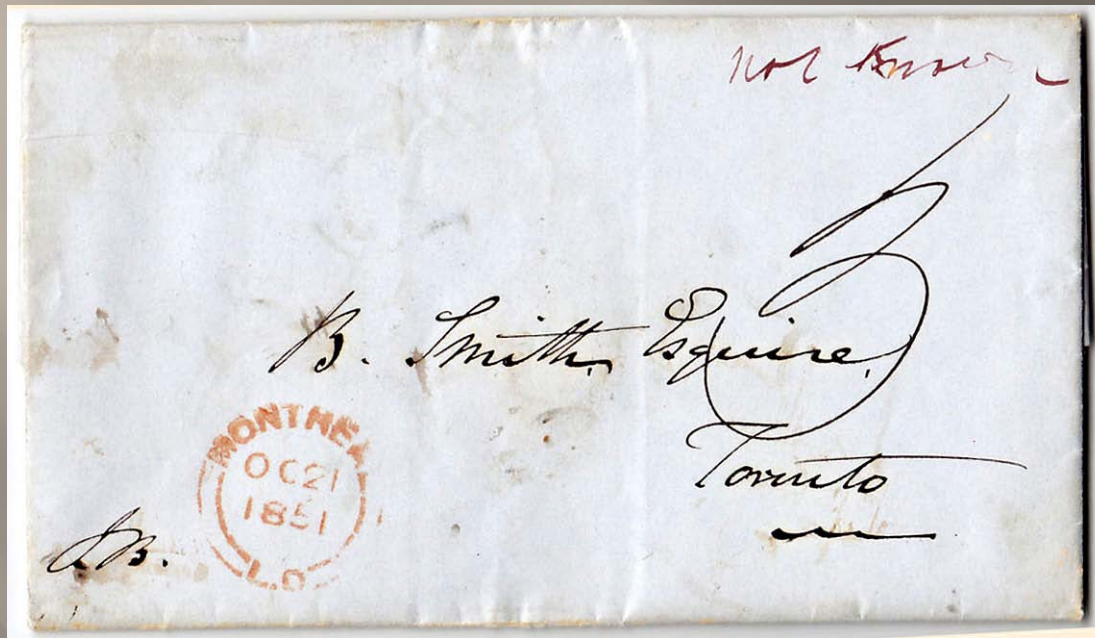 not Known
3
B. Smith Esquire,
Toronto
MONTREAL
OC 21
1851
L.C